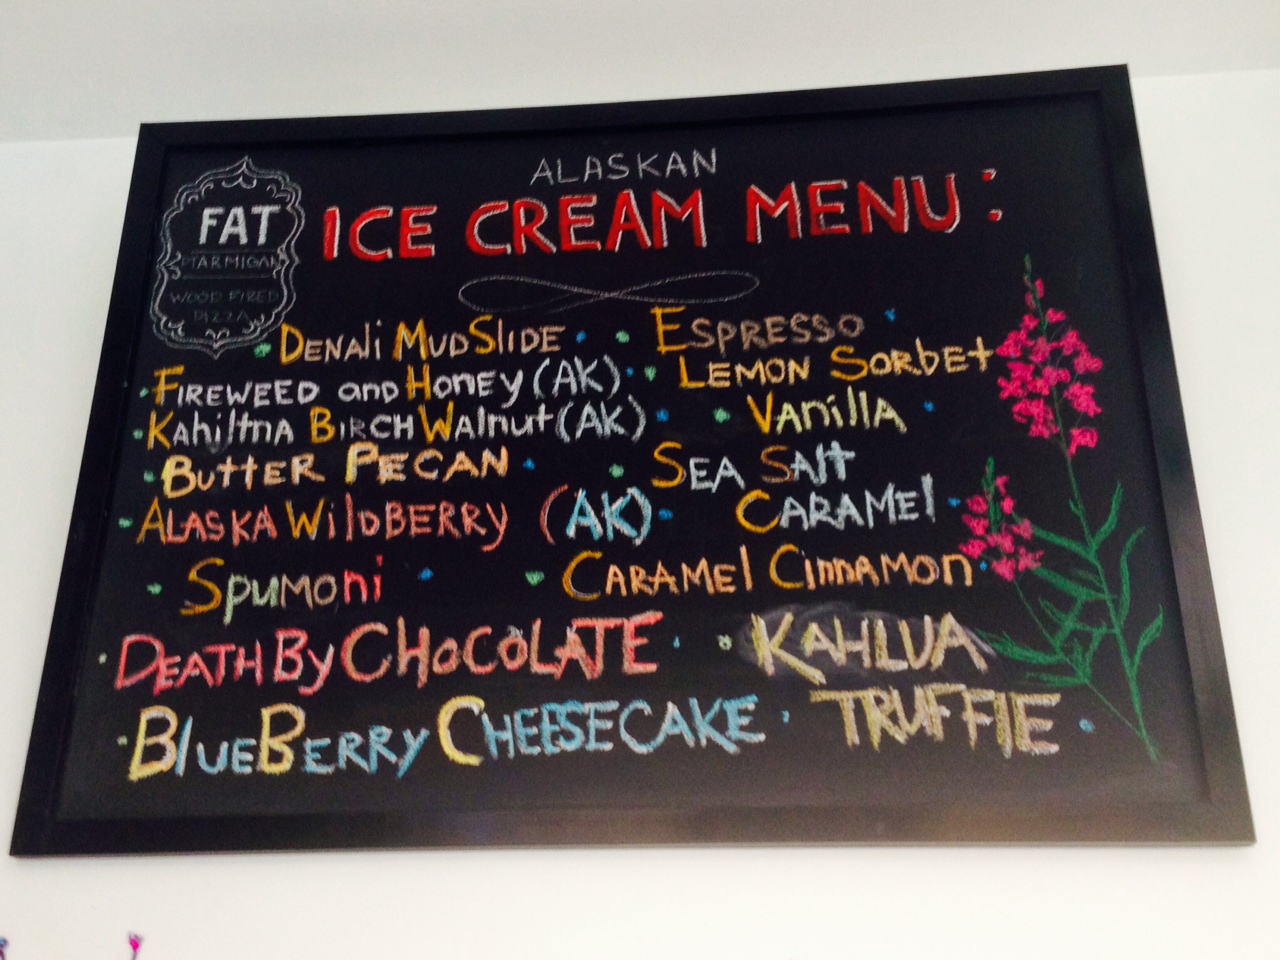 ALASKAN
ICE CREAM MENU:
FAT
PTARMIGAN
WOOD FIRED
PIZZA
DENALI MUDSLIDE
FIREWEED AND HONEY (AK)
KAHILTNA BIRCH WALNUT (AK)
BUTTER PECAN
ALASKA WILDBERRY (AK)
SPUMONI
DEATH BY CHOCOLATE
BLUEBERRY CHEESECAKE
ESPRESSO
LEMON SORBET
VANILLA
SEA SALT
CARAMEL
CARAMEL CINNAMON
KAHLUA
TRUFFLE